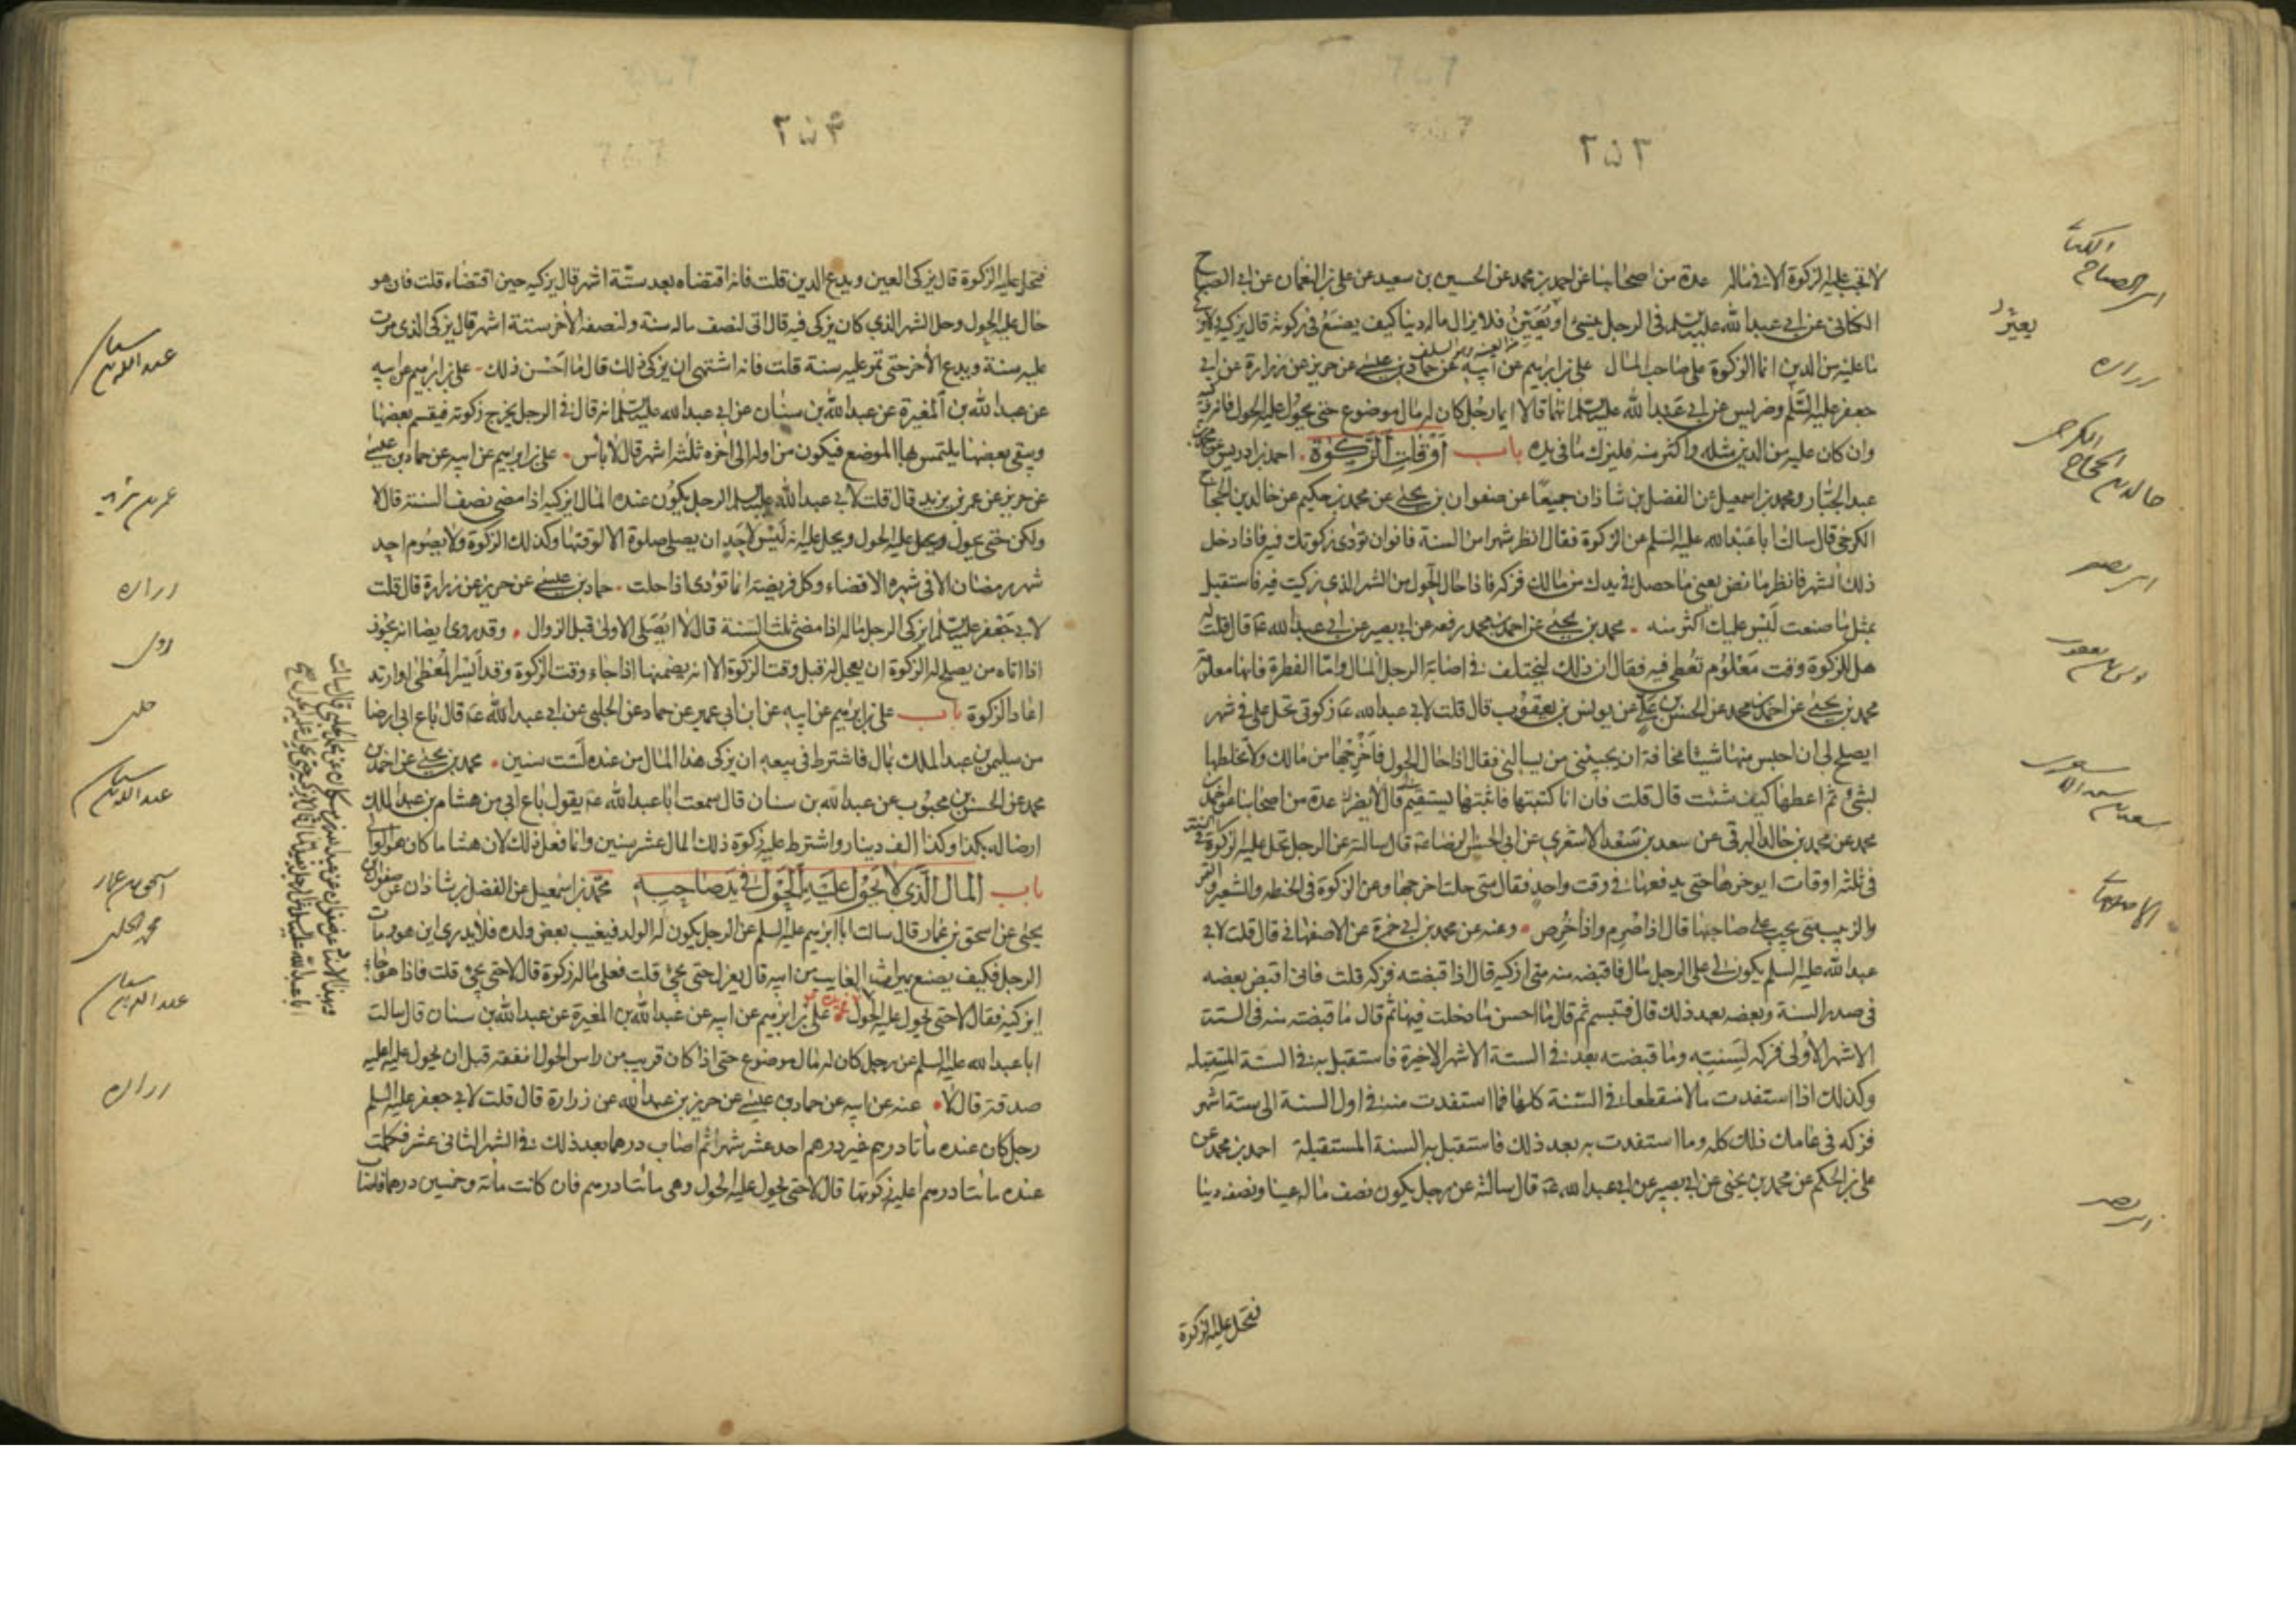 ٢٥٣
لا تجب عليه الزكوة الا في ماله عدة من اصحابنا عن احمد بن محمد عن الحسين بن سعيد عن علي بن النعمان عن ابي الصباح
الكناني عن ابي عبد الله عليه السلم في الرجل ينسئ او يعين فلا يزال ماله دينا كيف يصنع في زكوته قال يزكيه ولا يزكي
ما عليه من الدين انما الزكوة على صاحب المال علي بن ابرهيم عن ابيه عن حماد بن عيسى عن حريز عن زرارة عن ابي
جعفر عليه السلم وضريس عن ابي عبد الله عليه السلم انهما قالا ايما رجل كان له مال موضوع حتى يحول عليه الحول فانه يزكيه
وان كان عليه من الدين مثله واكثر منه فليزك ما في يده باب اوقات الزكوة احمد بن ادريس عن محمد بن
عبد الجبار ومحمد بن اسمعيل عن الفضل بن شاذان جميعا عن صفوان بن يحيى عن محمد بن حكيم عن خالد بن الحجاج
الكرخي قال سالت ابا عبد الله عليه السلم عن الزكوة فقال انظر شهرا من السنة فانو ان تؤدى زكوتك فيه فاذا دخل
ذلك الشهر فانظر ما نض يعني ما حصل في يدك من مالك فزكه فاذا حال الحول من الشهر الذي زكيت فيه فاستقبل
بمثل ما صنعت ليس عليك اكثر منه محمد بن يحيى عن احمد بن محمد رفعه عن ابي بصير عن ابي عبد الله ع قال قلت له
هل للزكوة وقت معلوم تعطى فيه فقال ان ذلك ليختلف في اصابة الرجل المال واما الفطرة فانها معلومة
محمد بن يحيى عن احمد بن محمد عن الحسن بن علي عن يونس بن يعقوب قال قلت لابي عبد الله ع زكوتي تحل علي في شهر
ايصلح لي ان احبس منها شيئا مخافة ان يجيئني من يسالني فقال اذا حال الحول فاخرجها من مالك ولا تخلطها
بشئ ثم اعطها كيف شئت قال قلت فان انا كتبتها فاثبتها يستقيم قال لا يضرك عدة من اصحابنا عن احمد بن
محمد عن محمد بن خالد البرقي عن سعد بن سعد الاشعري عن ابي الحسن الرضا ع قال سالته عن الرجل تحل عليه الزكوة في السنة
في ثلثة اوقات ايؤخرها حتى يدفعها في وقت واحد فقال متى حلت اخرجها وعن الزكوة في الحنطة والشعير والتمر
والزبيب متى يجب على صاحبها قال اذا صرم واذا خرص وعنه عن محمد بن ابي حمزة عن الاصفهاني قال قلت لابي
عبد الله عليه السلم يكون لي على الرجل مال فاقبضه منه متى ازكيه قال اذا قبضته فزكه قلت فاني اقبض بعضه
في صدر السنة وبعضه بعد ذلك قال فتبسم ثم قال ما احسن ما دخلت فيها ثم قال ما قبضته منه في الستة
الاشهر الاولى فزكه لسنته وما قبضته بعد في الستة الاشهر الاخيرة فاستقبل به في السنة المستقبلة
وكذلك اذا استفدت مالا منقطعا في السنة كلها فما استفدت منه في اول السنة الى ستة اشهر
فزكه في عامك ذلك كله وما استفدت به بعد ذلك فاستقبل به السنة المستقبلة احمد بن محمد عن
علي بن الحكم عن محمد بن يحيى عن ابي بصير عن ابي عبد الله ع قال سالته عن رجل يكون نصف ماله عينا ونصفه دينا
فتحل عليه الزكوة
الكنانى
ابى الصباح
زراره
الكرخى
خالد بن الحجاج
ابى بصير
يونس بن يعقوب
سعد بن سعد الاشعرى
الاصفهانى
ابى بصير
٢٥۴
فتحل عليه الزكوة قال يزكى العين ويدع الدين قلت فانه اقتضاه بعد ستة اشهر قال يزكيه حين اقتضاه قلت فان هو
حال عليه الحول وحل الشهر الذي كان يزكى فيه قد اتى لنصف ماله سنة ولنصفه الآخر ستة اشهر قال يزكى الذي مرت
عليه سنة ويدع الآخر حتى تمر عليه سنة قلت فانه اشتهى ان يزكى ذلك قال ما احسن ذلك علي بن ابرهيم عن ابيه
عن عبد الله بن المغيرة عن عبد الله بن سنان عن ابي عبد الله عليه السلم انه قال في الرجل يخرج زكوته فيقسم بعضها
ويبقى بعضها يلتمس لها الموضع فيكون من اوله الى آخره ثلثة اشهر قال لا باس علي بن ابرهيم عن ابيه عن حماد بن عيسى
عن حريز عن عمر بن يزيد قال قلت لابي عبد الله عليه السلم الرجل يكون عنده المال ايزكيه اذا مضى نصف السنة قال لا
ولكن حتى يحول عليه الحول ويحل عليه انه ليس لاحد ان يصلي صلوة الا لوقتها وكذلك الزكوة ولا يصوم احد
شهر رمضان الا في شهره الا قضاء وكل فريضة انما تؤدى اذا حلت حماد بن عيسى عن حريز عن زرارة قال قلت
لابي جعفر عليه السلم ايزكى الرجل ماله اذا مضى ثلث السنة قال لا ايصلى الاولى قبل الزوال وقد روى ايضا انه يجوز
اذا اتاه من يصلح له الزكوة ان يعجل له قبل وقت الزكوة الا انه يضمنها اذا جاء وقت الزكوة وقد ايسر المعطى او ارتد
اعاد الزكوة باب علي بن ابرهيم عن ابيه عن ابن ابي عمير عن حماد عن الحلبي عن ابي عبد الله ع قال باع ابي ارضا
من سليمن بن عبد الملك بمال فاشترط في بيعه ان يزكى هذا المال من عنده لست سنين محمد بن يحيى عن احمد بن
محمد عن الحسن بن محبوب عن عبد الله بن سنان قال سمعت ابا عبد الله ع يقول باع ابي من هشام بن عبد الملك
ارضا له بكذا وكذا الف دينار واشترط عليه زكوة ذلك المال عشر سنين وانما فعل ذلك لان هشاما كان هو الوالي
باب المال الذي لا يحول عليه الحول في يد صاحبه محمد بن اسمعيل عن الفضل بن شاذان عن صفوان بن
يحيى عن اسحق بن عمار قال سالت ابا ابرهيم عليه السلم عن الرجل يكون له الولد فيغيب بعض ولده فلا يدرى اين هو ومات
الرجل فكيف يصنع بميراث الغايب من ابيه قال يعزل حتى يجئ قلت فعلى ماله زكوة قال لا حتى يجئ قلت فاذا هو جاء
ايزكيه فقال لا حتى يحول عليه الحول علي بن ابرهيم عن ابيه عن عبد الله بن المغيرة عن عبد الله بن سنان قال سالت
ابا عبد الله عليه السلم عن رجل كان له مال موضوع حتى اذا كان قريب من راس الحول انفقه قبل ان يحول عليه اعليه
صدقة قال لا عنه عن ابيه عن حماد بن عيسى عن حريز بن عبد الله عن زرارة قال قلت لابي جعفر عليه السلم
رجل كان عنده مأتا درهم غير درهم احد عشر شهرا ثم اصاب درهما بعد ذلك في الشهر الثاني عشر فكملت
عنده مائتا درهم اعليه زكوتها قال لا حتى يحول عليه الحول وهي مائتا درهم فان كانت مائة وخمسين درهما فاصاب
عبد الله بن سنان
عمر بن يزيد
زراره
روى
حلبى
عبد الله بن سنان
اسحق بن عمار
محمد الحلبى
عبد الله بن سنان
زراره